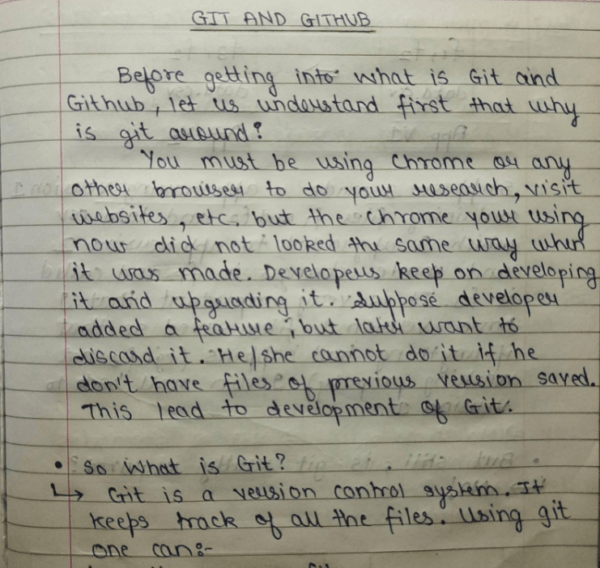 GIT AND GITHUB
Before getting into what is Git and
Github, let us understand first that why
is git around?
You must be using Chrome or any
other browser to do your research, visit
websites, etc. but the Chrome your using
now did not looked the same way when
it was made. Developers keep on developing
it and upgrading it. Suppose developer
added a feature, but later want to
discard it. He/she cannot do it if he
don't have files of previous version saved.
This lead to development of Git.
• So What is Git?
↳ Git is a version control system. It
keeps track of all the files. Using git
one can:-